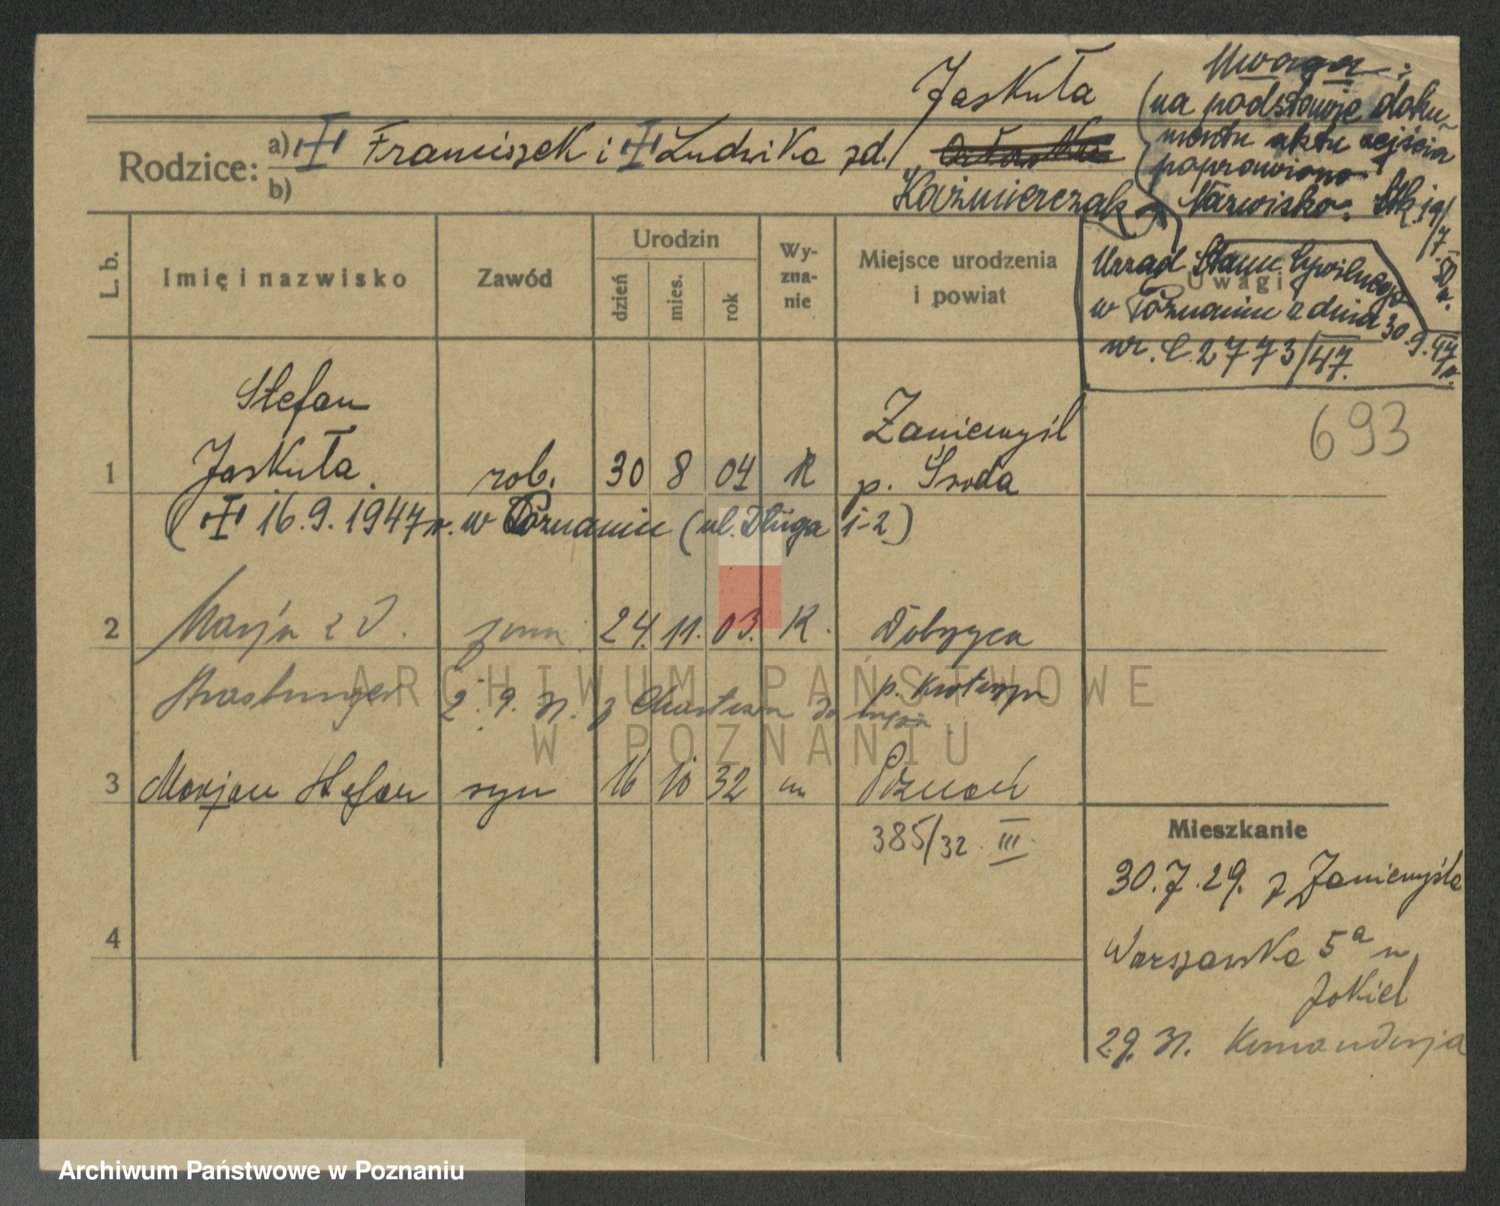 Jaskuła
Uwaga:
na podstawie doku-
mentu aktu zejścia
poprawiono
Nazwisko. 19/
/7.50 r.
Rodzice: a) Franciszek i Ludwika zd.
b) Kaźmierczak
Urząd Stanu Cywilnego
w Poznaniu z dnia 30.9.47 r.
nr. C.2773/47.
L. b.
Imię i nazwisko
Zawód
Urodzin
dzień
mies.
rok
Wy-
zna-
nie
Miejsce urodzenia
i powiat
Uwagi
693
1 Stefan
Jaskuła. rob. 30 8 04 R Zaniemyśl
p. Środa
( 16.9.1947 r. w Poznaniu (ul. Długa 1-2)
2 Marja z d. żona 24. 11. 03. R. Dobrzyca
Strasburger 2.9.31. z p. Krotoszyn
3 Marjan Stefan syn 16 10 32 Poznań
385/32. III.
4
Mieszkanie
30.7.29. z Zaniemyśla
Warszawska 5a
Jokiel
2.9.31. Komandorja
ARCHIWUM PAŃSTWOWE
W POZNANIU
Archiwum Państwowe w Poznaniu